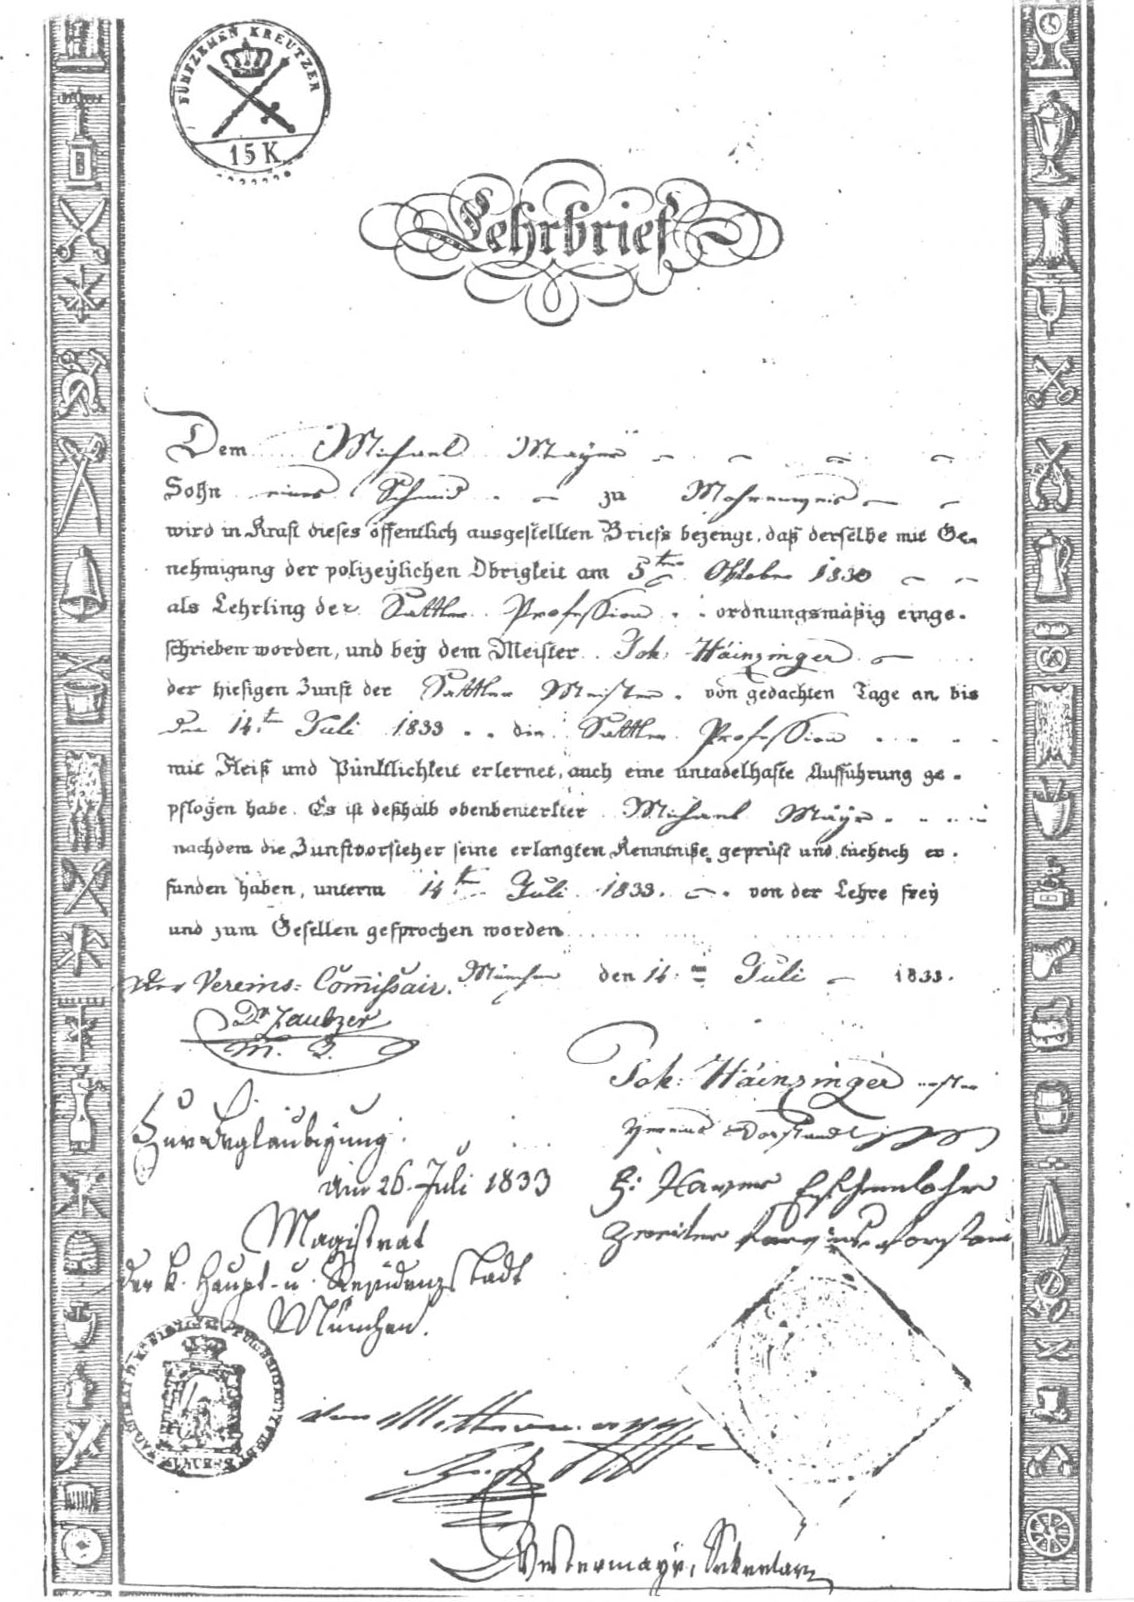 FÜNFZEHEN KREUTZER
15 K
Lehrbrief
Dem Michael Mayer
Sohn eines Schmid zu
wird in Kraft dieses öffentlich ausgestellten Briefs bezeugt, daß derselbe mit Ge-
nehmigung der polizeylichen Obrigkeit am 5ten Oktober 1830
als Lehrling der Sattler Profession ordnungsmäßig einge-
schrieben worden, und bey dem Meister Joh: Häinzinger
der hiesigen Zunft der Sattler Meister von gedachten Tage an bis
den 14t Juli 1833 die Sattler Profession
mit Fleiß und Pünktlichkeit erlernet, auch eine untadelhafte Aufführung ge-
pflogen habe. Es ist deßhalb obenbemerkter Michael Mayr
nachdem die Zunftvorsteher seine erlangten Kenntniße geprüft und tüchtich er-
funden haben, unterm 14ten Juli 1833. von der Lehre frey
und zum Gesellen gesprochen worden
München den 14 Juli 1833.
Der Vereins: Commissair.
Dr Zaubzer
Joh: Häinzinger erster
Vereins Vorstand
Zur Beglaubigung
Am 26. Juli 1833
Xaver Eschenlohr
zweiter Vereins Vorstand
Magistrat
der k. Haupt- u. Residenzstadt
München.
von
Sekretär